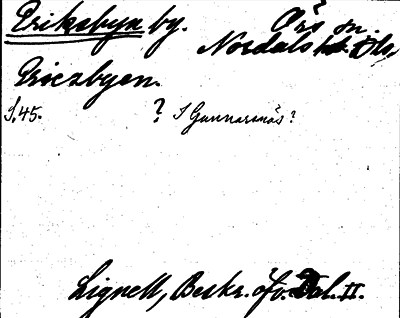 Eriksbyn by. Örs sn
Nordals hd. Dls.
Ericzbyen.
S. 45. ? I Gunnarsnäs?
Lignell, Beskr. öfv. Dal. II.